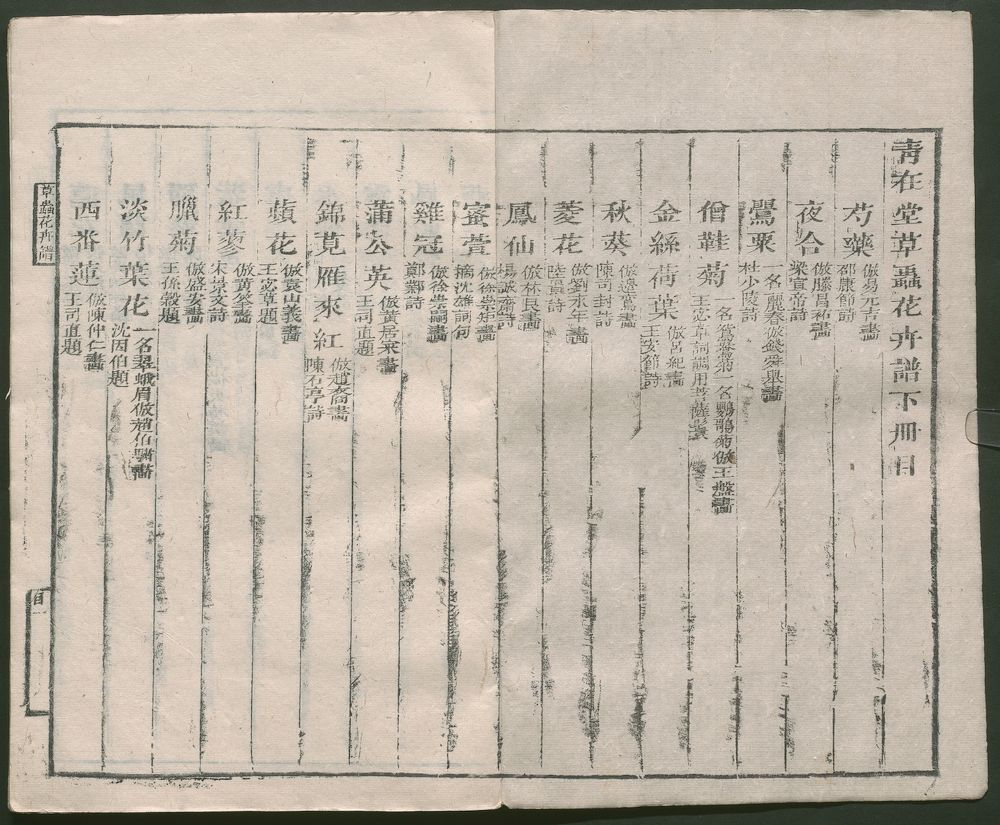 青在堂草蟲花卉譜下冊目
芍藥
倣易元吉畫
邵康節詩
夜合
倣滕昌祐畫
梁宣帝詩
鶯粟
一名麗春倣錢舜舉畫
杜少陵詩
僧鞋菊
一名鴛鴦菊一名鸚鵡菊倣王盤畫
王宓草詞調用菩薩蠻
金絲荷葉
倣呂紀畫
王安節詩
秋葵
倣邊鸞畫
陳司封詩
菱花
倣劉永年畫
陸
詩
鳳仙
倣林良畫
楊誠齋詩
蜜萱
倣徐崇矩畫
楊沈雄詞句
雞冠
倣徐崇嗣畫
鄭
詩
蒲公英
倣黃居寀畫
王司直題
錦莧雁來紅
倣趙
畫
陳石亭詩
蘋花
倣袁山義畫
王宓草題
紅蓼
倣黃筌畫
宋景文詩
臘菊
倣盛安畫
王孫穀題
淡竹葉花
一名翠蛾眉倣趙伯驌畫
沈因伯題
西番蓮
倣陳仲仁畫
王司直題
草蟲花卉譜
目一